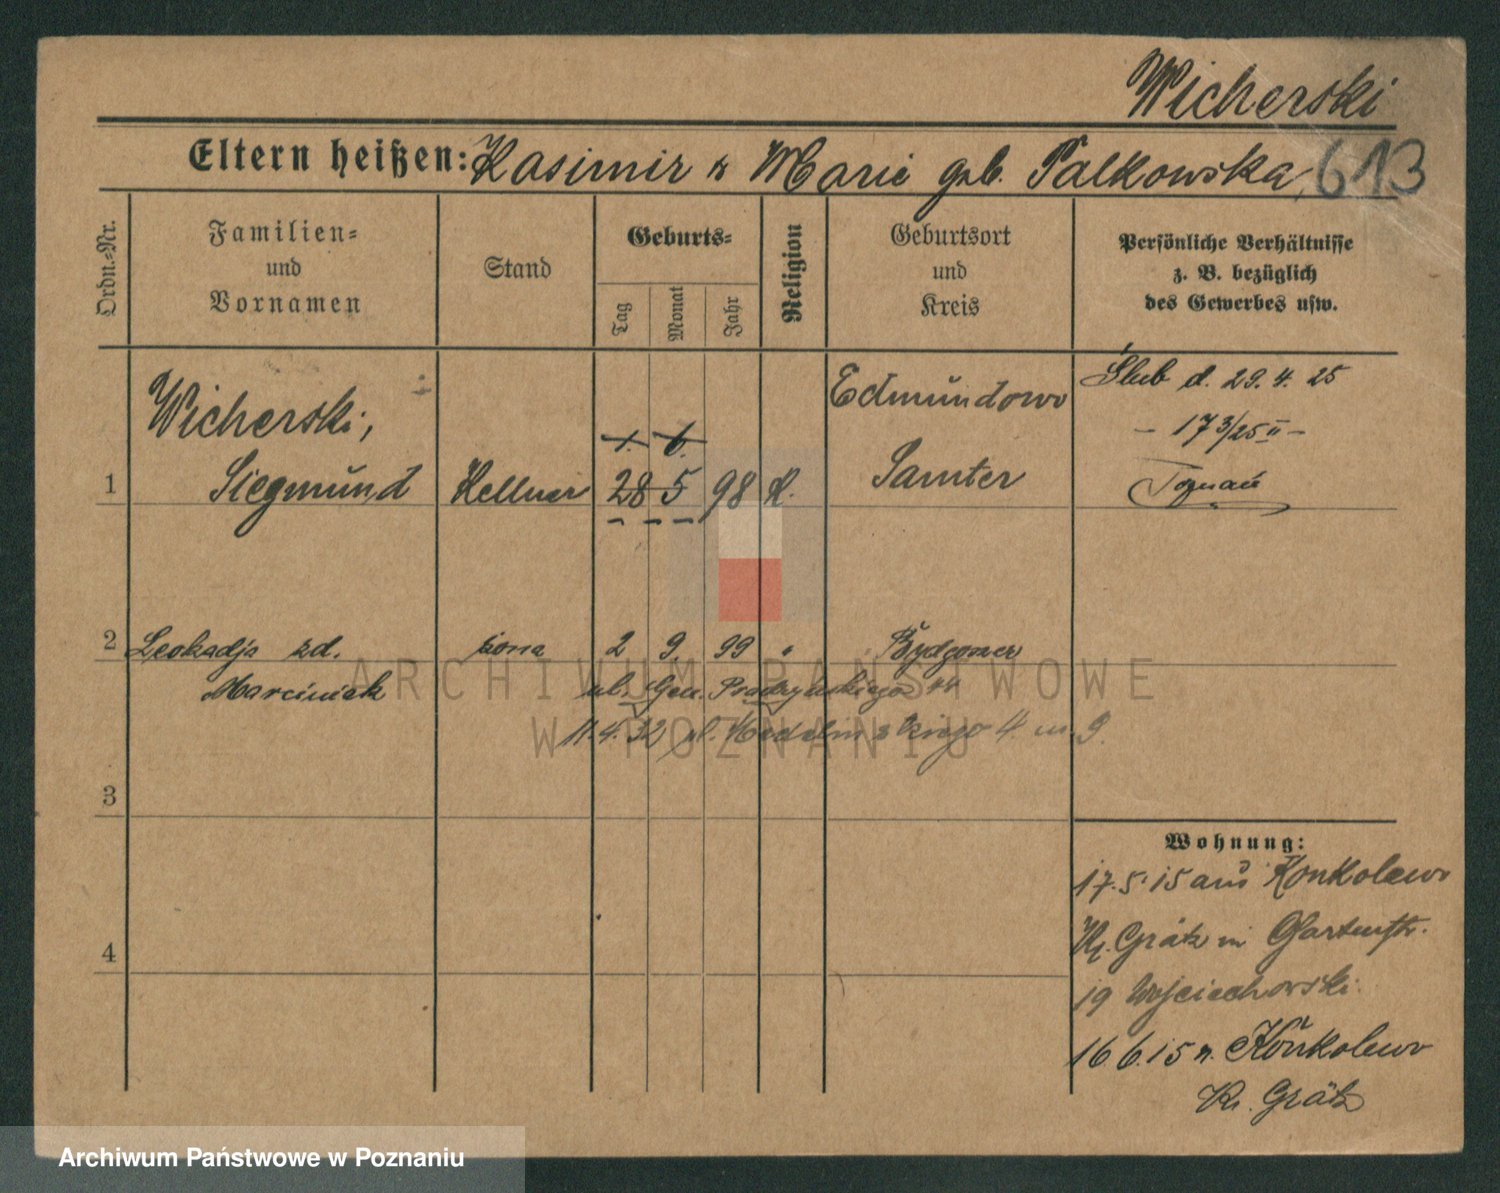 Wicherski
Eltern heißen: Kasimir u Marie geb. Palkowska, 613
Ordn.-Nr.
Familien-
und
Vornamen
Stand
Geburts-
Tag
Monat
Jahr
Religion
Geburtsort
und
Kreis
Persönliche Verhältnisse
z. B. bezüglich
des Gewerbes usw.
Wicherski,
1 Siegmund Kellner 28 5 98 K.
1. 6.
Edmundowo
Samter
Ślub d. 29. 4. 25
- 173/25 II -
Poznań
2 Leokadja zd. żona 2 9. 99 " Bydgoszcz
Marciniak ul. Gen. Prądzyńskiego 44
11.4.32 ul. 4 m. 9.
3
4
Wohnung:
17.5.15 aus Konkolewo
Kr. Grätz in Gartenstr.
19 Wojciechowski
16 6.15 n. Konkolewo
Kr. Grätz
ARCHIWUM PAŃSTWOWE
W POZNANIU
Archiwum Państwowe w Poznaniu